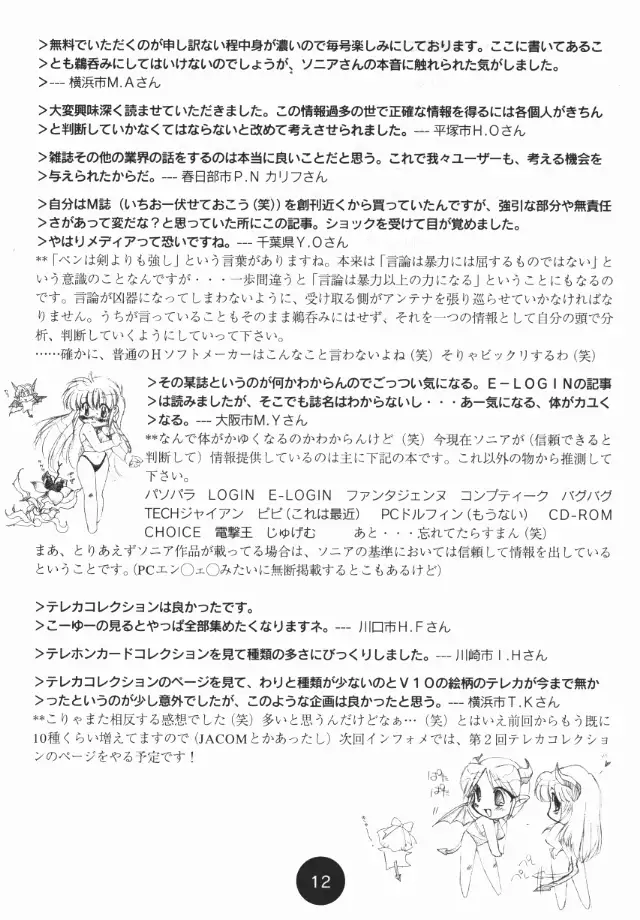 >無料でいただくのが申し訳ない程中身が濃いので毎号楽しみにしております。ここに書いてあるこ
>とも鵜呑みにしてはいけないのでしょうが、ソニアさんの本音に触れられた気がしました。
>--- 横浜市M.Aさん
>大変興味深く読ませていただきました。この情報過多の世で正確な情報を得るには各個人がきちん
>と判断していかなくてはならないと改めて考えさせられました。--- 平塚市H.Oさん
>雑誌その他の業界の話をするのは本当に良いことだと思う。これで我々ユーザーも、考える機会を
>与えられたからだ。--- 春日部市P.N カリフさん
>自分はM誌（いちおー伏せておこう（笑））を創刊近くから買っていたんですが、強引な部分や無責任
>さがあって変だな？と思っていた所にこの記事。ショックを受けて目が覚めました。
>やはりメディアって恐いですね。--- 千葉県Y.Oさん
**「ペンは剣よりも強し」という言葉がありますね。本来は「言論は暴力には屈するものではない」と
いう意識のことなんですが・・・一歩間違うと「言論は暴力以上の力になる」ということにもなるの
です。言論が凶器になってしまわないように、受け取る側がアンテナを張り巡らせていかなければな
りません。うちが言っていることもそのまま鵜呑みにはせず、それを一つの情報として自分の頭で分
析、判断していくようにしていって下さい。
……確かに、普通のHソフトメーカーはこんなこと言わないよね（笑）そりゃビックリするわ（笑）
>その某誌というのが何かわからんのでごっつい気になる。E－LOGINの記事
>は読みましたが、そこでも誌名はわからないし・・・あー気になる、体がカユく
>なる。--- 大阪市M.Yさん
**なんで体がかゆくなるのかわからんけど（笑）今現在ソニアが（信頼できると
判断して）情報提供しているのは主に下記の本です。これ以外の物から推測して
下さい。
パソパラ LOGIN E-LOGIN ファンタジェンヌ コンプティーク バグバグ
TECHジャイアン ピピ（これは最近） PCドルフィン（もうない） CD-ROM
CHOICE 電撃王 じゅげむ あと・・・忘れてたらすまん（笑）
まあ、とりあえずソニア作品が載ってる場合は、ソニアの基準においては信頼して情報を出している
ということです。（PCエン◯ェ◯みたいに無断掲載するとこもあるけど）
>テレカコレクションは良かったです。
>こーゆーの見るとやっぱ全部集めたくなりますネ。--- 川口市H.Fさん
>テレホンカードコレクションを見て種類の多さにびっくりしました。--- 川崎市I.Hさん
>テレカコレクションのページを見て、わりと種類が少ないのとV10の絵柄のテレカが今まで無か
>ったというのが少し意外でしたが、このような企画は良かったと思う。--- 横浜市T.Kさん
**こりゃまた相反する感想でした（笑）多いと思うんだけどなぁ…（笑）とはいえ前回からもう既に
10種くらい増えてますので（JACOMとかあったし）次回インフォメでは、第2回テレカコレクショ
ンのページをやる予定です！
ぱた
ぱた
12